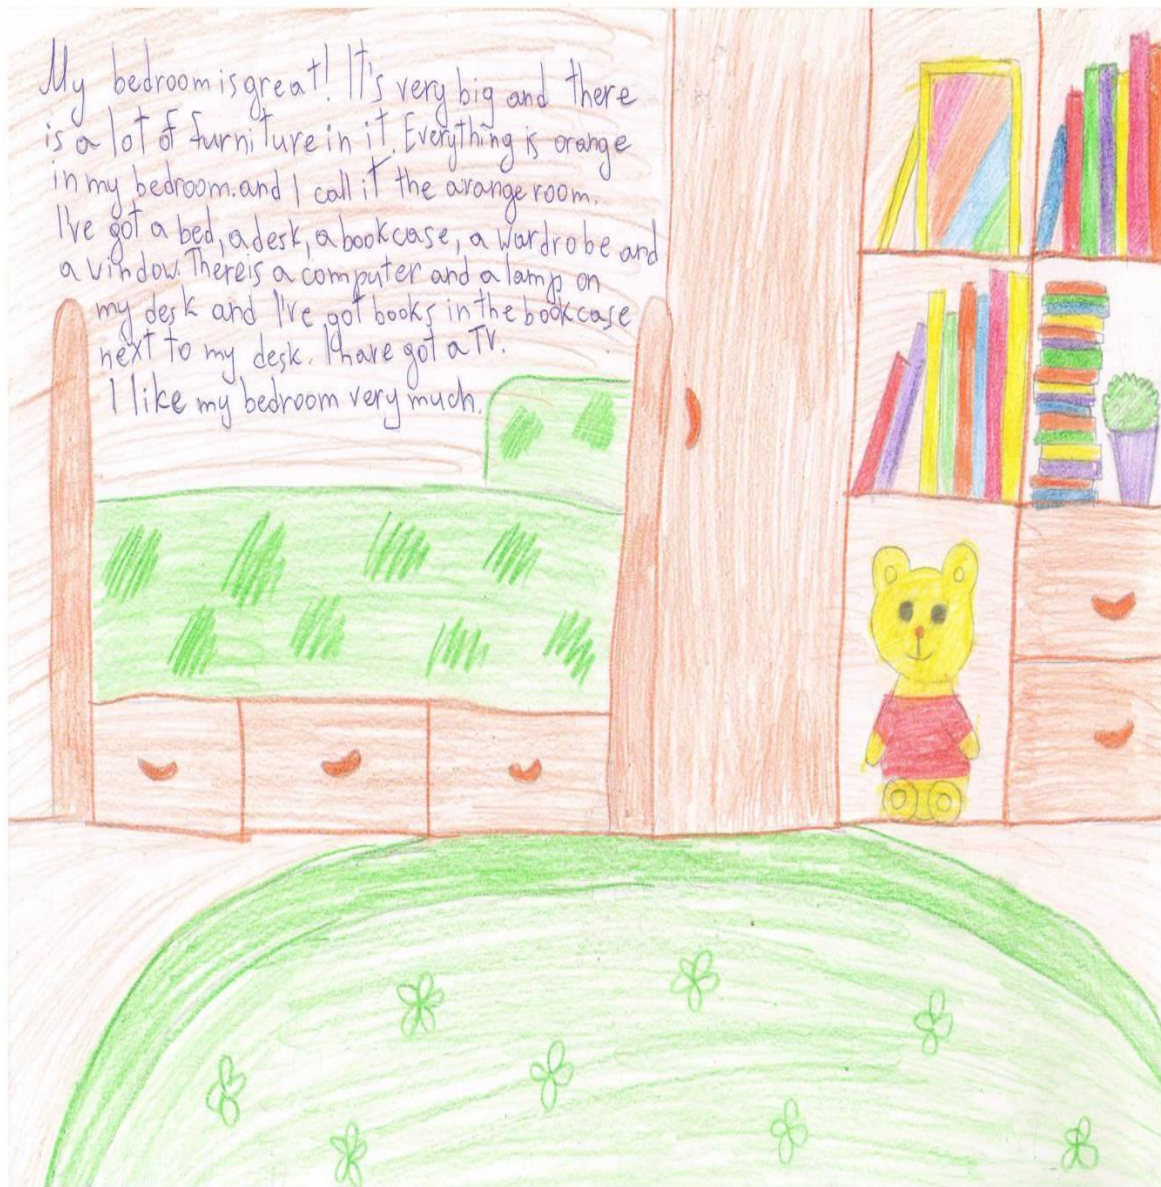 My bedroom is great! It's very big and there
is a lot of furniture in it. Everything is orange
in my bedroom. and I call it the arange room.
I've got a bed, a desk, a bookcase, a wardrobe and
a vindow. There is a computer and a lamp on
my desk and I've got books in the bookcase
next to my desk. I have got a TV.
I like my bedroom very much.